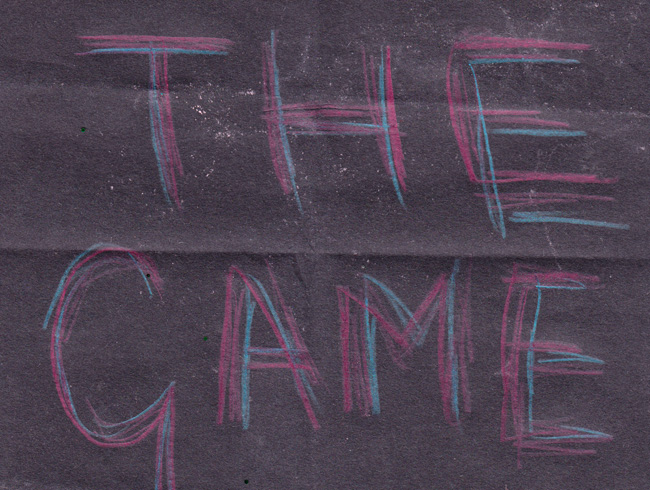 THE
GAME